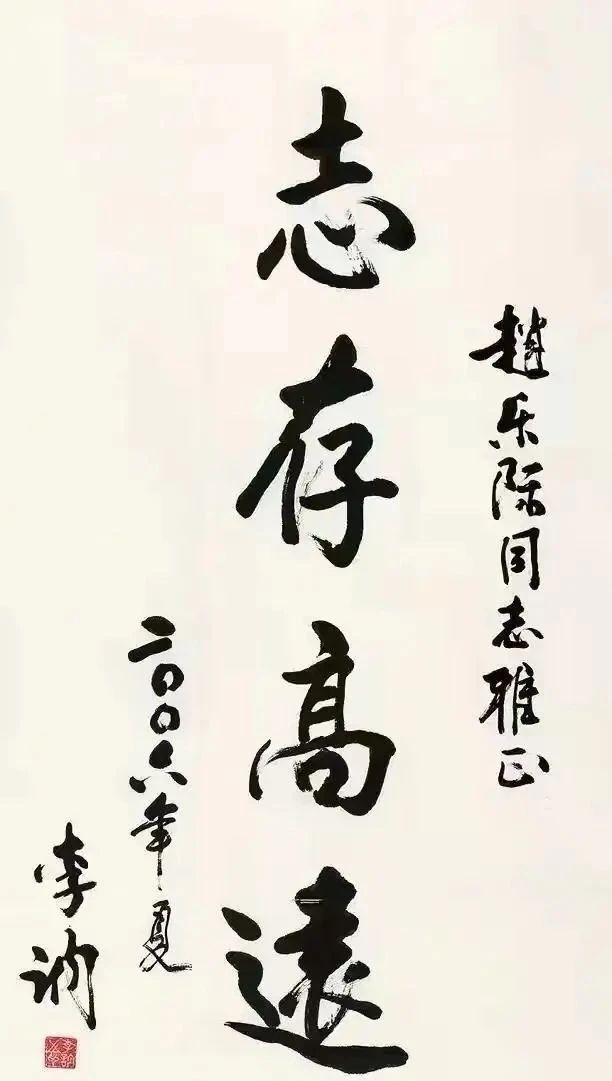 趙乐际同志雅正
志存高遠
二〇〇六年夏
李讷